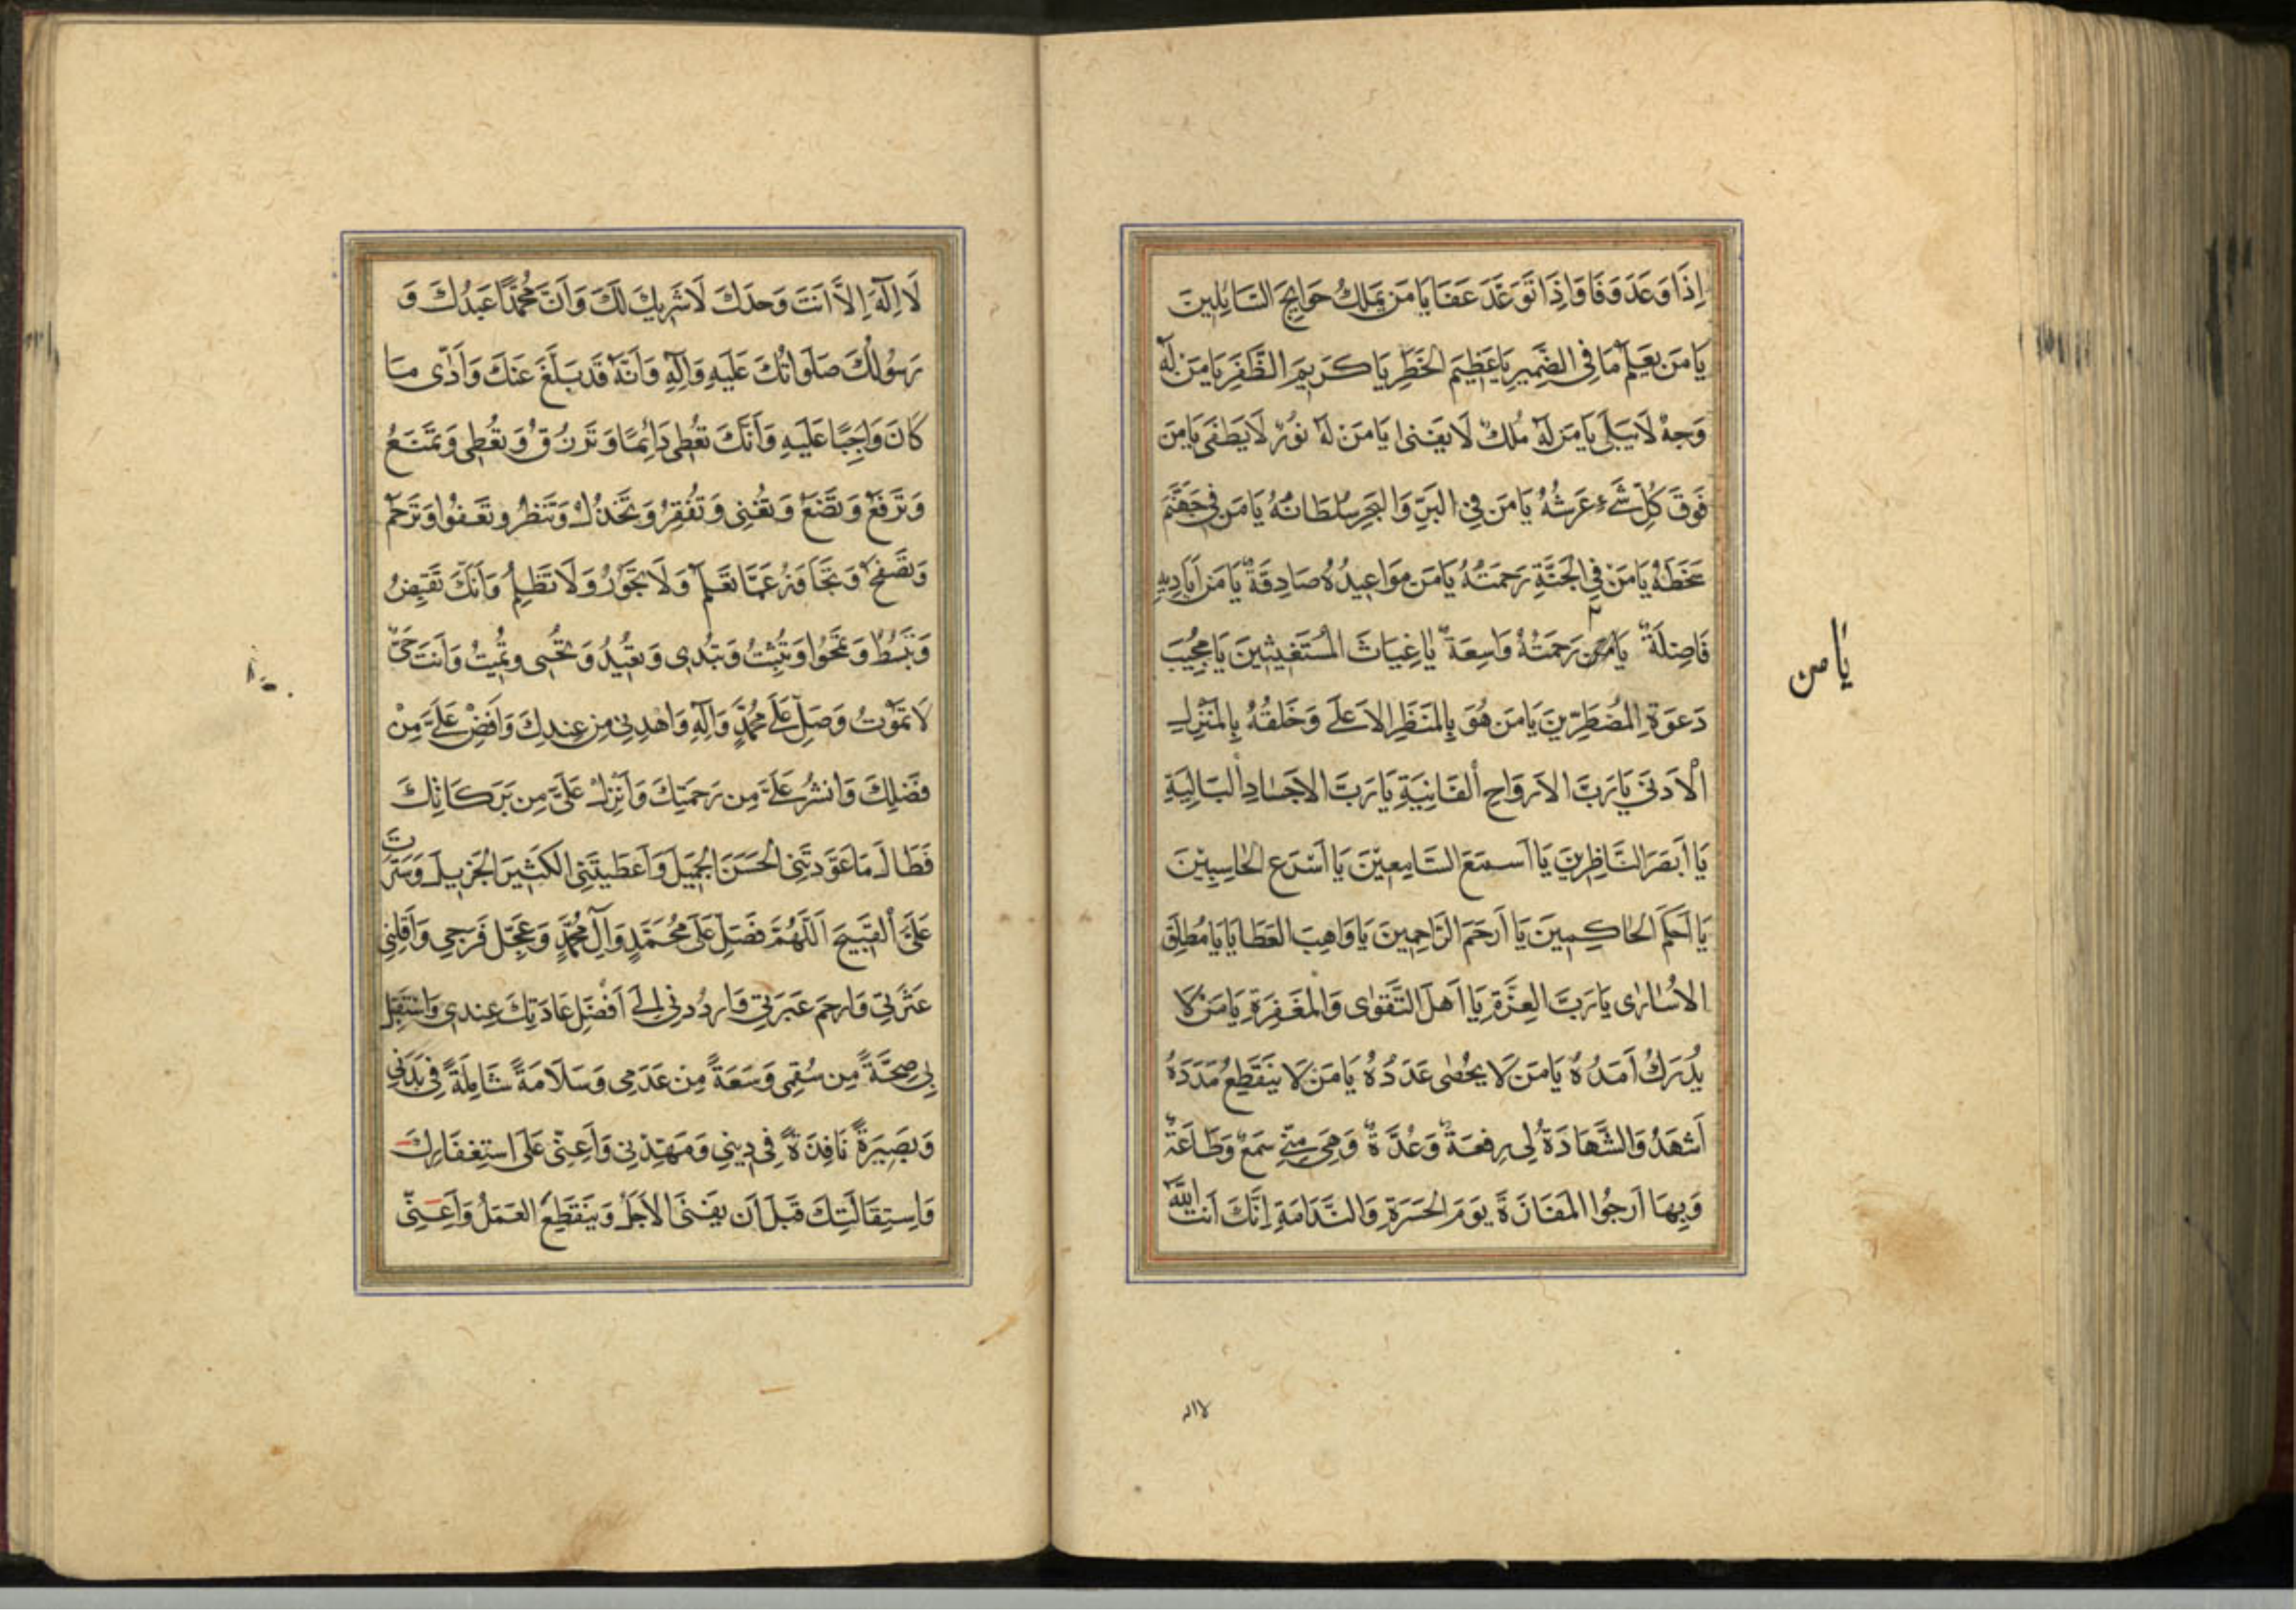 إِذَا وَعَدَ وَفَا وَاِذَا تَوَعَّدَ عَفَا يَا مَن يَمْلِكُ حَوَايِجَ السَّائِلِينَ
يَا مَن يَعْلَمُ مَا فِي الضَّمِيرِ يَا عَظِيمَ الخَطَرِ يَا كَرِيمَ الظَّفَرِ يَا مَن لَهُ
وَجهٌ لَا يَبلَى يَا مَن لَهُ مُلكٌ لَا يَفنى يَا مَن لَهُ نُورٌ لَا يَطفَى يَا مَن
فَوقَ كُلِّ شَيءٍ عَرشُهُ يَا مَن فِي البَرِّ وَالبَحرِ سُلطَانُهُ يَا مَن فِي جَهَنَّمَ
سَخَطُهُ يَا مَن فِي الجَنَّةِ رَحمَتُهُ يَا مَن مَوَاعِيدُهُ صَادِقَةٌ يَا مَن اَيَادِيهِ
فَاضِلَةٌ يَا مَن رَحمَتُهُ وَاسِعَةٌ يَا غِيَاثَ المُستَغِيثِينَ يَا مُجِيبَ
يَا من
دَعوَةِ المُضطَرِّينَ يَا مَن هُوَ بِالمَنظَرِ الاَعلَى وَخَلقُهُ بِالمَنزِلِ
الاَدنَى يَا رَبَّ الاَروَاحِ الفَانِيَةِ يَا رَبَّ الاَجسَادِ البَالِيَةِ
يَا اَبصَرَ النَّاظِرِينَ يَا اَسمَعَ السَّامِعِينَ يَا اَسرَعَ الحَاسِبِينَ
يَا اَحكَمَ الحَاكِمِينَ يَا اَرحَمَ الرَّاحِمِينَ يَا وَاهِبَ العَطَايَا يَا مُطلِقَ
الاُسَارَى يَا رَبَّ العِزَّةِ يَا اَهلَ التَّقوَى وَالمَغفِرَةِ يَا مَن لَا
يُدرَكُ اَمَدُهُ يَا مَن لَا يُحصَى عَدَدُهُ يَا مَن لَا يَنقَطِعُ مَدَدُهُ
اَشهَدُ وَالشَّهَادَةُ لِي رِفعَةٌ وَعُدَّةٌ وَهِيَ مِنِّي سَمعٌ وَطَاعَةٌ
وَبِهَا اَرجُوا المَفَازَةَ يَومَ الحَسرَةِ وَالنَّدَامَةِ اِنَّكَ اَنتَ اللهُ
لا اله
لَا اِلَهَ اِلَّا اَنتَ وَحدَكَ لَا شَرِيكَ لَكَ وَاَنَّ مُحَمَّدًا عَبدُكَ وَ
رَسُولُكَ صَلَوَاتُكَ عَلَيهِ وَآلِهِ وَاَنَّهُ قَد بَلَّغَ عَنكَ وَاَدَّى مَا
كَانَ وَاجِبًا عَلَيهِ وَاَنَّكَ تُعطِي دَائِمًا وَتَرزُقُ وَتُعطِي وَتَمنَعُ
وَتَرفَعُ وَتَضَعُ وَتُغنِي وَتُفقِرُ وَتَخذُلُ وَتَنصُرُ وَتَعفُوا وَتَرحَمُ
وَتَصفَحُ وَتَجَاوَزُ عَمَّا تَعلَمُ وَلَا تَجُورُ وَلَا تَظلِمُ وَاَنَّكَ تَقبِضُ
وَتَبسُطُ وَتَمحُوا وَتُثبِتُ وَتُبدِي وَتُعِيدُ وَتُحيِي وَتُمِيتُ وَاَنتَ حَيٌّ
لَا تَمُوتُ وَصَلِّ عَلَى مُحَمَّدٍ وَآلِهِ وَاهدِنِي مِن عِندِكَ وَاَفِض عَلَيَّ مِن
فَضلِكَ وَانشُر عَلَيَّ مِن رَحمَتِكَ وَاَنزِل عَلَيَّ مِن بَرَكَاتِكَ
فَطَالَ مَا عَوَّدتَنِي الحَسَنَ الجَمِيلَ وَاَعطَيتَنِي الكَثِيرَ الجَزِيلَ وَسَتَرتَ
عَلَيَّ القَبِيحَ اَللّهُمَّ فَصَلِّ عَلَى مُحَمَّدٍ وَآلِ مُحَمَّدٍ وَعَجِّل فَرَجِي وَاَقِلنِي
عَثرَتِي وَارحَم عَبرَتِي وَاردُدنِي اِلَى اَفضَلِ عَادَتِكَ عِندِي وَاستَقبِل
بِي صِحَّةً مِن سُقمِي وَسَعَةً مِن عَدَمِي وَسَلَامَةً شَامِلَةً فِي بَدَنِي
وَبَصِيرَةً نَافِذَةً فِي دِينِي وَمَهِّدنِي وَاَعِنِّي عَلَى استِغفَارِكَ
وَاستِقَالَتِكَ قَبلَ اَن يَفنَى الاَجَلُ وَيَنقَطِعَ العَمَلُ وَاَعِنِّي